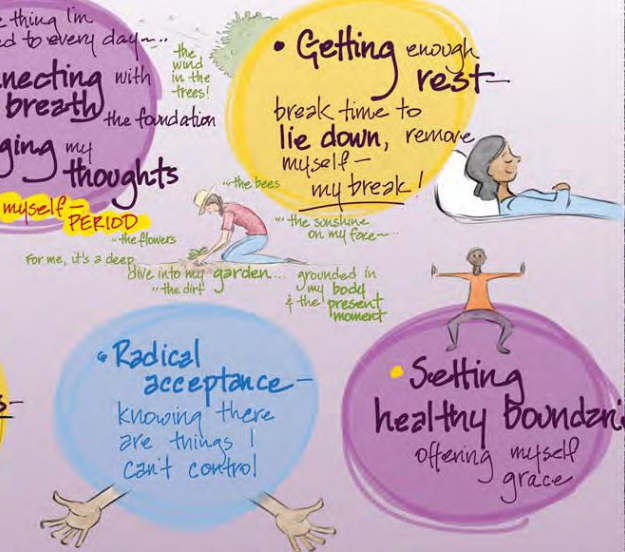 thing I'm
to every day....
with
breath
the foundation
my
thoughts
myself –
PERIOD
...the
wind
in the
trees!
• Getting enough
rest –
break time to
lie down, remove
myself –
my break!
...the bees
...the sunshine
on my face....
...the flowers
For me, it's a deep
dive into my garden... grounded in
...the dirt
my body
& the present
moment
• Radical
acceptance –
knowing there
are things I
can't control
• Setting
healthy
offering myself
grace